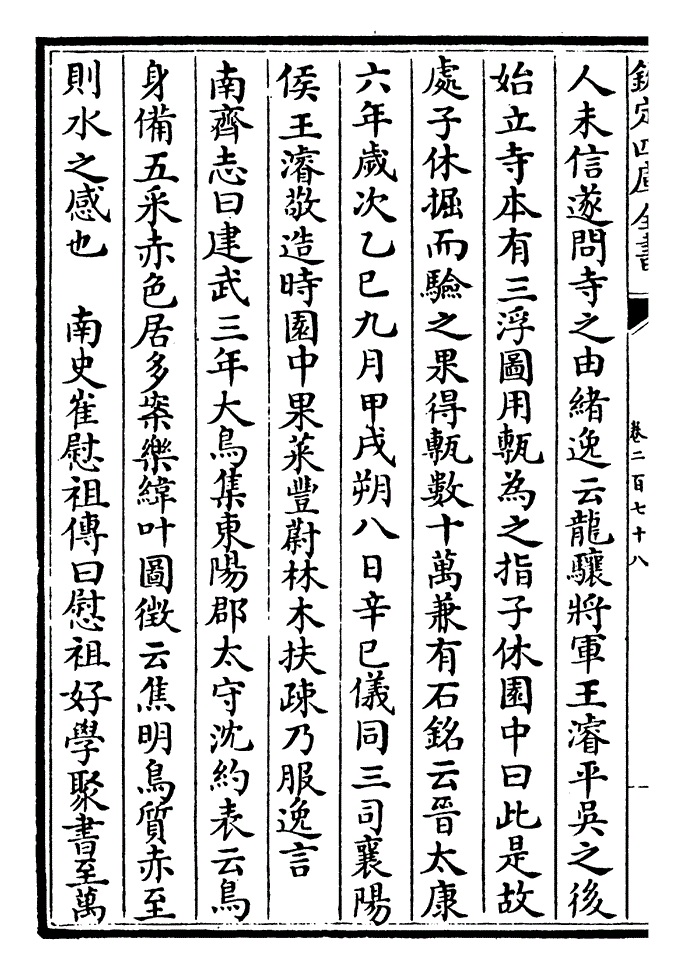 欽定四庫全書
卷二百七十八
人未信遂問寺之由緒逸云龍驤將軍王濬平吳之後
始立寺本有三浮圖用甎為之指子休園中曰此是故
處子休掘而驗之果得甎數十萬兼有石銘云晉太康
六年歲次乙巳九月甲戌朔八日辛巳儀同三司襄陽
侯王濬敬造時園中果菜豐蔚林木扶疎乃服逸言
南齊志曰建武三年大鳥集東陽郡太守沈約表云鳥
身備五采赤色居多案樂緯叶圖徵云焦明鳥質赤至
則水之感也　南史崔慰祖傳曰慰祖好學聚書至萬